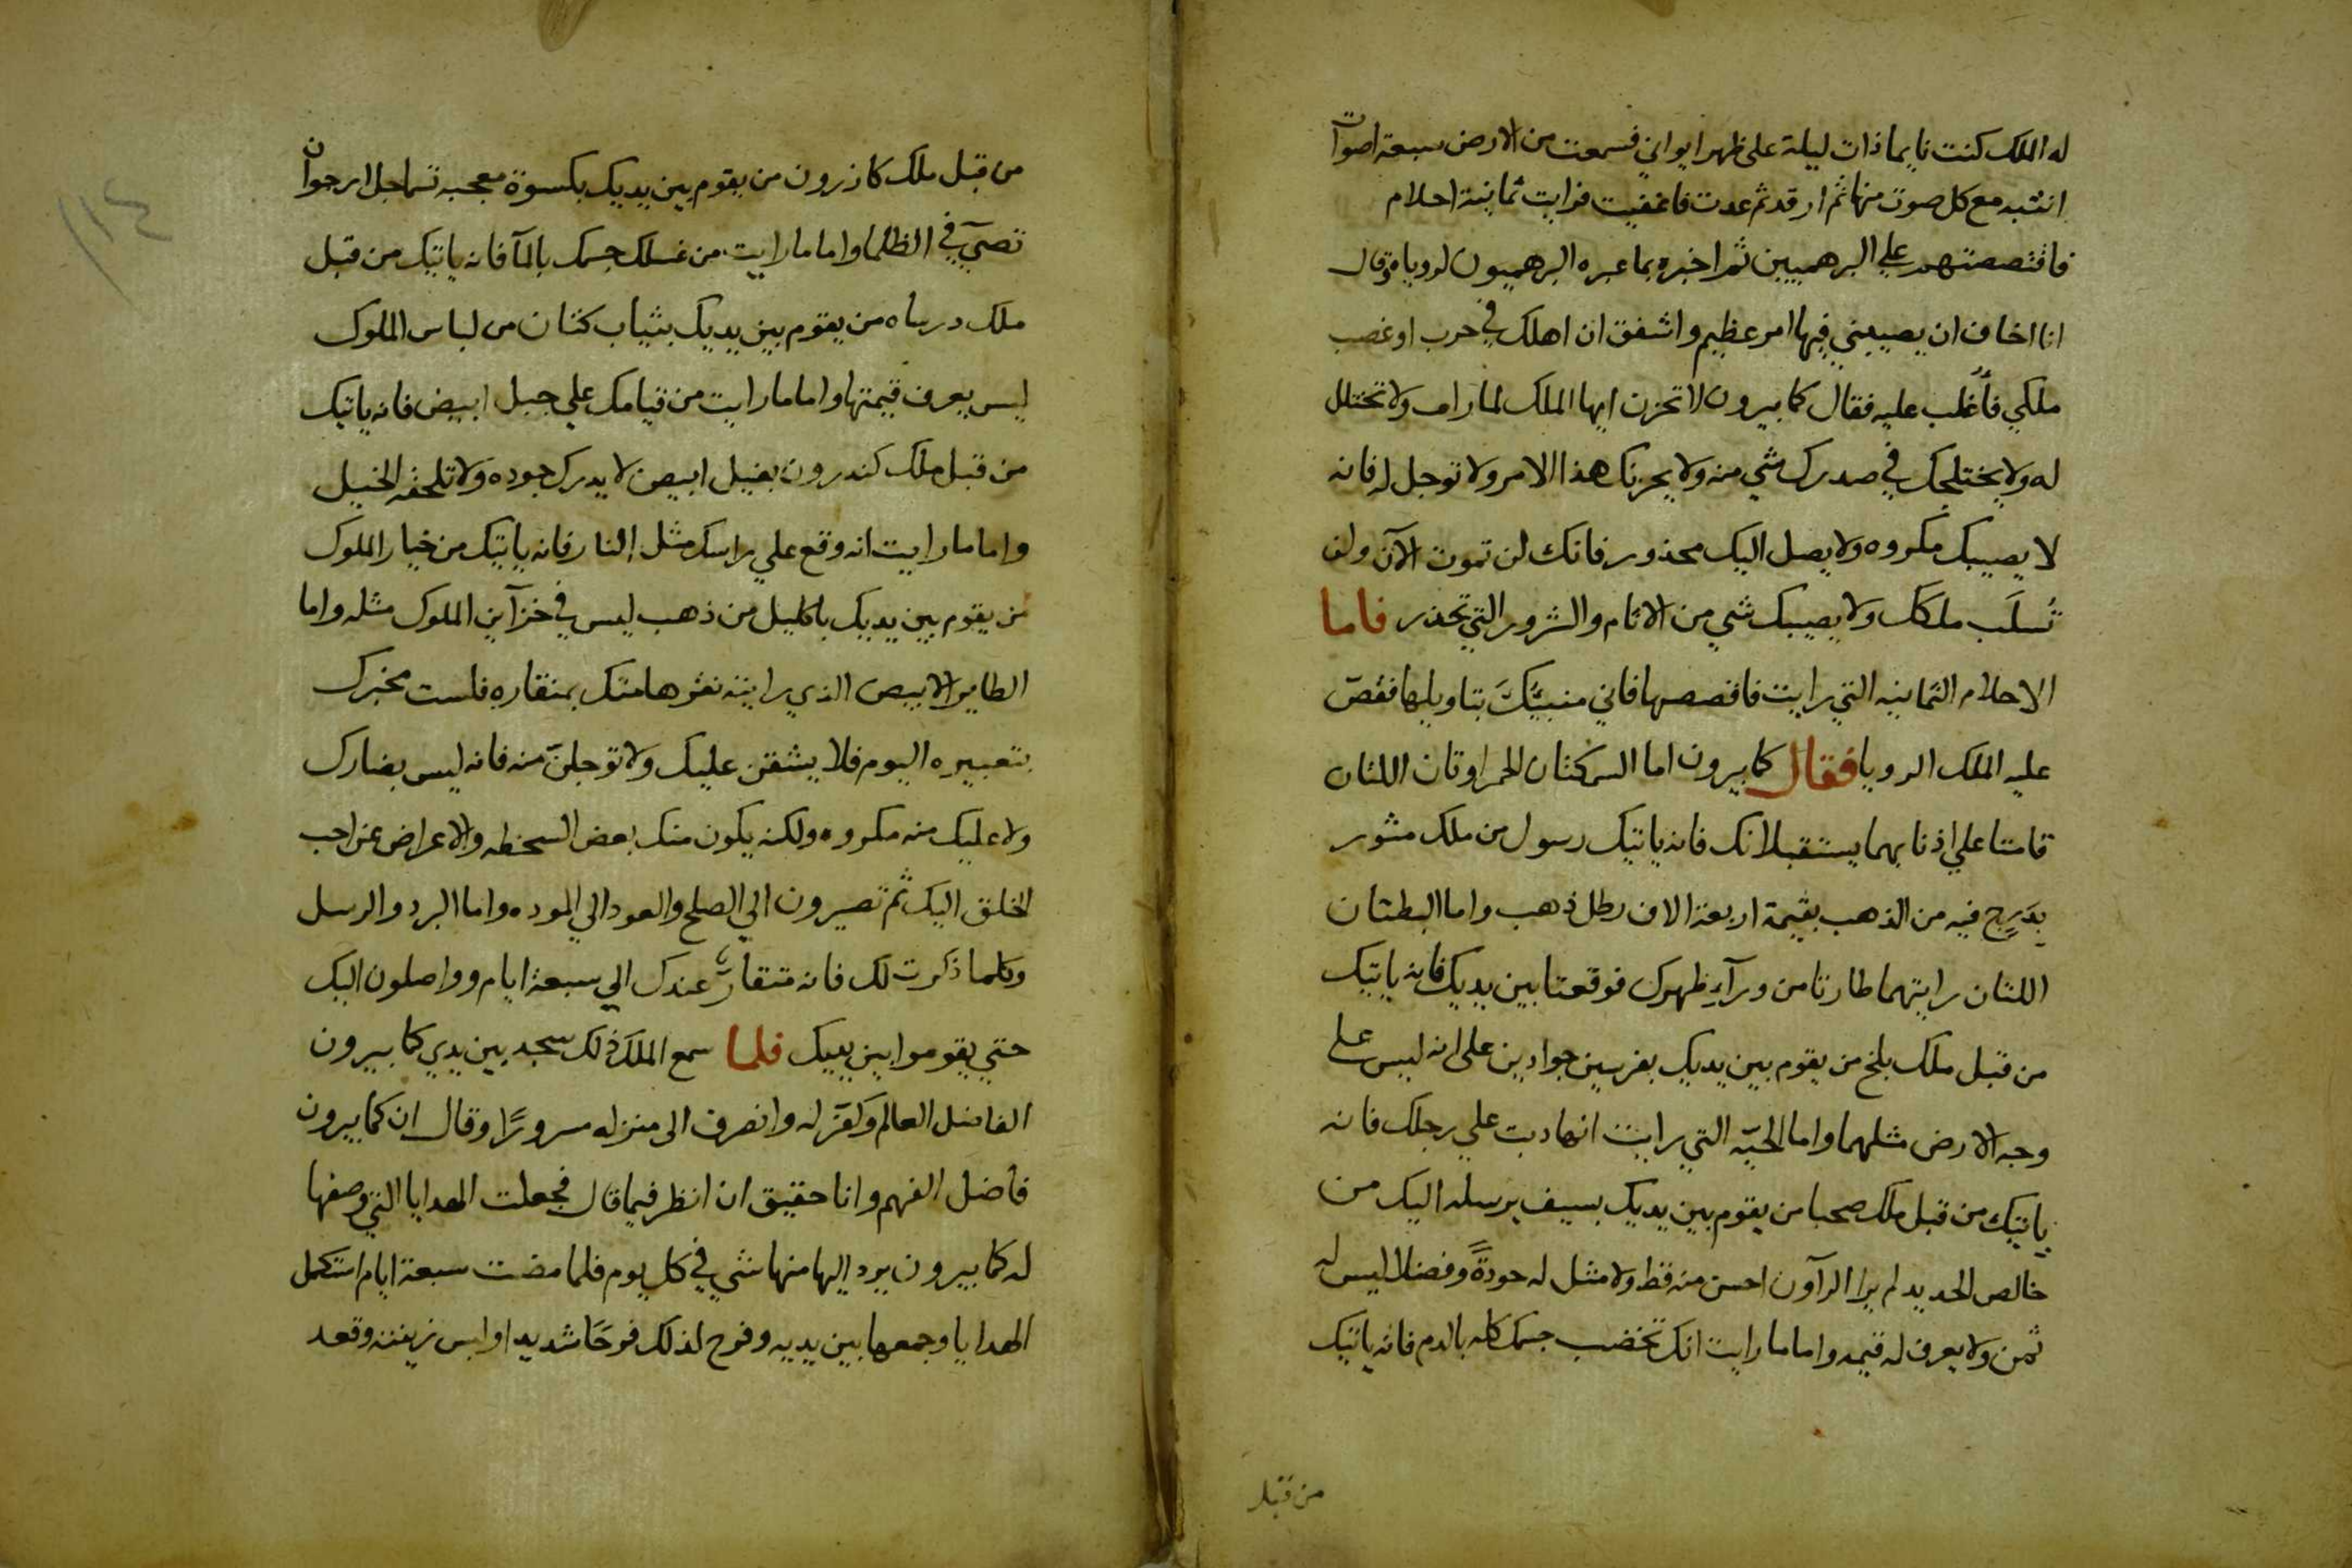 له الملك كنت نايما ذات ليلة على ظهر ايواني فسمعت من الارض سبعة اصوات
انتبه مع كل صوت منها ثم ارقد ثم عدت فاغفيت فرايت ثمانية احلام
فاقتصصتهم علي البرهميين ثم اخبره بما عبره البرهميون لروياه وقال
انا اخاف ان يصيبني فيها امر عظيم واشفق ان اهلك في حرب او غصب
ملكي فأغلب عليه فقال كابيرون لا تحزن ايها الملك لما راف ولا تختلل
له ولا يختلجك في صدرك شي منه ولا يحزنك هذا الامر ولا توجل له فانه
لا يصيبك مكروه ولا يصل اليك محذور فانك لن تموت الآن ولن
تُسلَب ملكك ولا يصيبك شي من الاثام والشرور التي تحذر فاما
الاحلام الثمانيه التي رايت فاقصصها فاني منبيّك بتاويلها فقصّ
عليه الملك الرويا فقال كابيرون اما السمكتان الحمراوتان اللتان
قامتا علي اذنابهما يستقبلانك فانه ياتيك رسول من ملك مشور
بدَرج فيه من الذهب بقيمة اربعة الاف رطل ذهب واما البطتان
اللتان رايتهما طارتا من ورآء ظهرك فوقعتا بين يديك فانه ياتيك
من قبل ملك بلخ من يقوم بين يديك بفرسين جوادين على انه ليس على
وجه الارض مثلهما واما الحيّه التي رايت انها دبت علي رجلك فانه
ياتيك من قبل ملك صحبا من يقوم بين يديك بسيف يرسله اليك من
خالص الحديد لم يرا الرآون احسن منه قط ولا مثل له جودةً وفضلا ليس له
ثمن ولا يعرف له قيمه واما ما رايت انك تخضب جسمك كله بالدم فانه ياتيك
من قبل
١١٤
من قبل ملك كاذرون من يقوم بين يديك بكسوة معجبه تساجل ارجوان
تضيّ في الظلما واما ما رايت من غسلك جسمك بالمآ فانه ياتيك من قبل
ملك درساه من يقوم بين يديك بثياب كتان من لباس الملوك
ليس يعرف قيمتها واما ما رايت من قيامك علي جبل ابيض فانه ياتيك
من قبل ملك كندرون بفيل ابيض لا يدرك جوده ولا تلحقه الخيل
واما ما رايت انه وقع علي راسك مثل النار فانه ياتيك من خيار الملوك
من يقوم بين يديك باكليل من ذهب ليس في خزآين الملوك مثله واما
الطاير الابيض الذي رايته نقر هامتك بمنقاره فلست مخبرك
بتعبيره اليوم فلا يشقن عليك ولا توجلنّ منه فانه ليس بضارك
ولا عليك منه مكروه ولكنه يكون منك بعض السخطه والاعراض عن احب
الخلق اليك ثم تصيرون الي الصلح والعود الي الموده واما البرد والرسل
وكلما ذكرت لك فانه متقارب عندك الي سبعة ايام وواصلون اليك
حتي يقوموا بين يديك فلما سمع الملك ذلك سجد بين يدي كابيرون
الفاضل العالم وكفر له وانصرف الى منزله مسرورًا وقال ان كابيرون
فاضل الفهم وانا حقيق ان انظر فيما قال فجعلت الهدايا التي وصفها
له كابيرون يرد اليها منها شي في كل يوم فلما مضت سبعة ايام استكمل
الهدايا وجمعها بين يديه وفرح لذلك فرحًا شديدا ولبس زينته وقعد